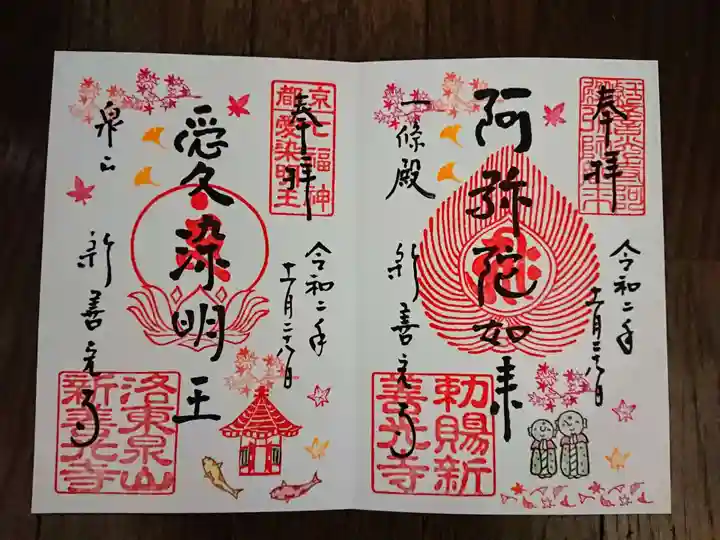 奉拝
令和二年
十一月二十八日
阿弥陀如来
一條殿
新善光寺
勅賜新
善光寺
京七福神
都愛染明王
奉拝
令和二年
十一月二十八日
愛染明王
泉山
新善光寺
洛東泉山
新善光寺